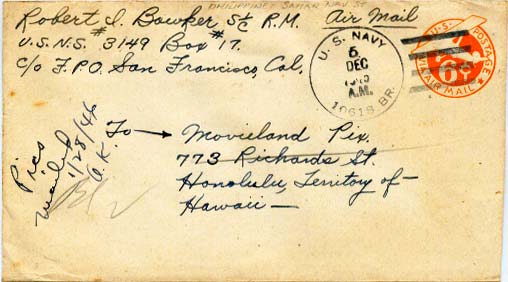 PHILIPPINES SAMAR NAV ST
Robert J. Bowker S1/c R.M. Air Mail
U.S.N.S. #3149 Box #17.
c/o F.P.O. San Francisco, Cal.
U. S. NAVY
5
DEC
A.M.
10618 BR.
U.S. POSTAGE
6¢
VIA AIR MAIL
To → Movieland Pix.
773 Richards St.
Honolulu, Territory of —
Hawaii —
Pics
mailed
1/28/46
O.K.